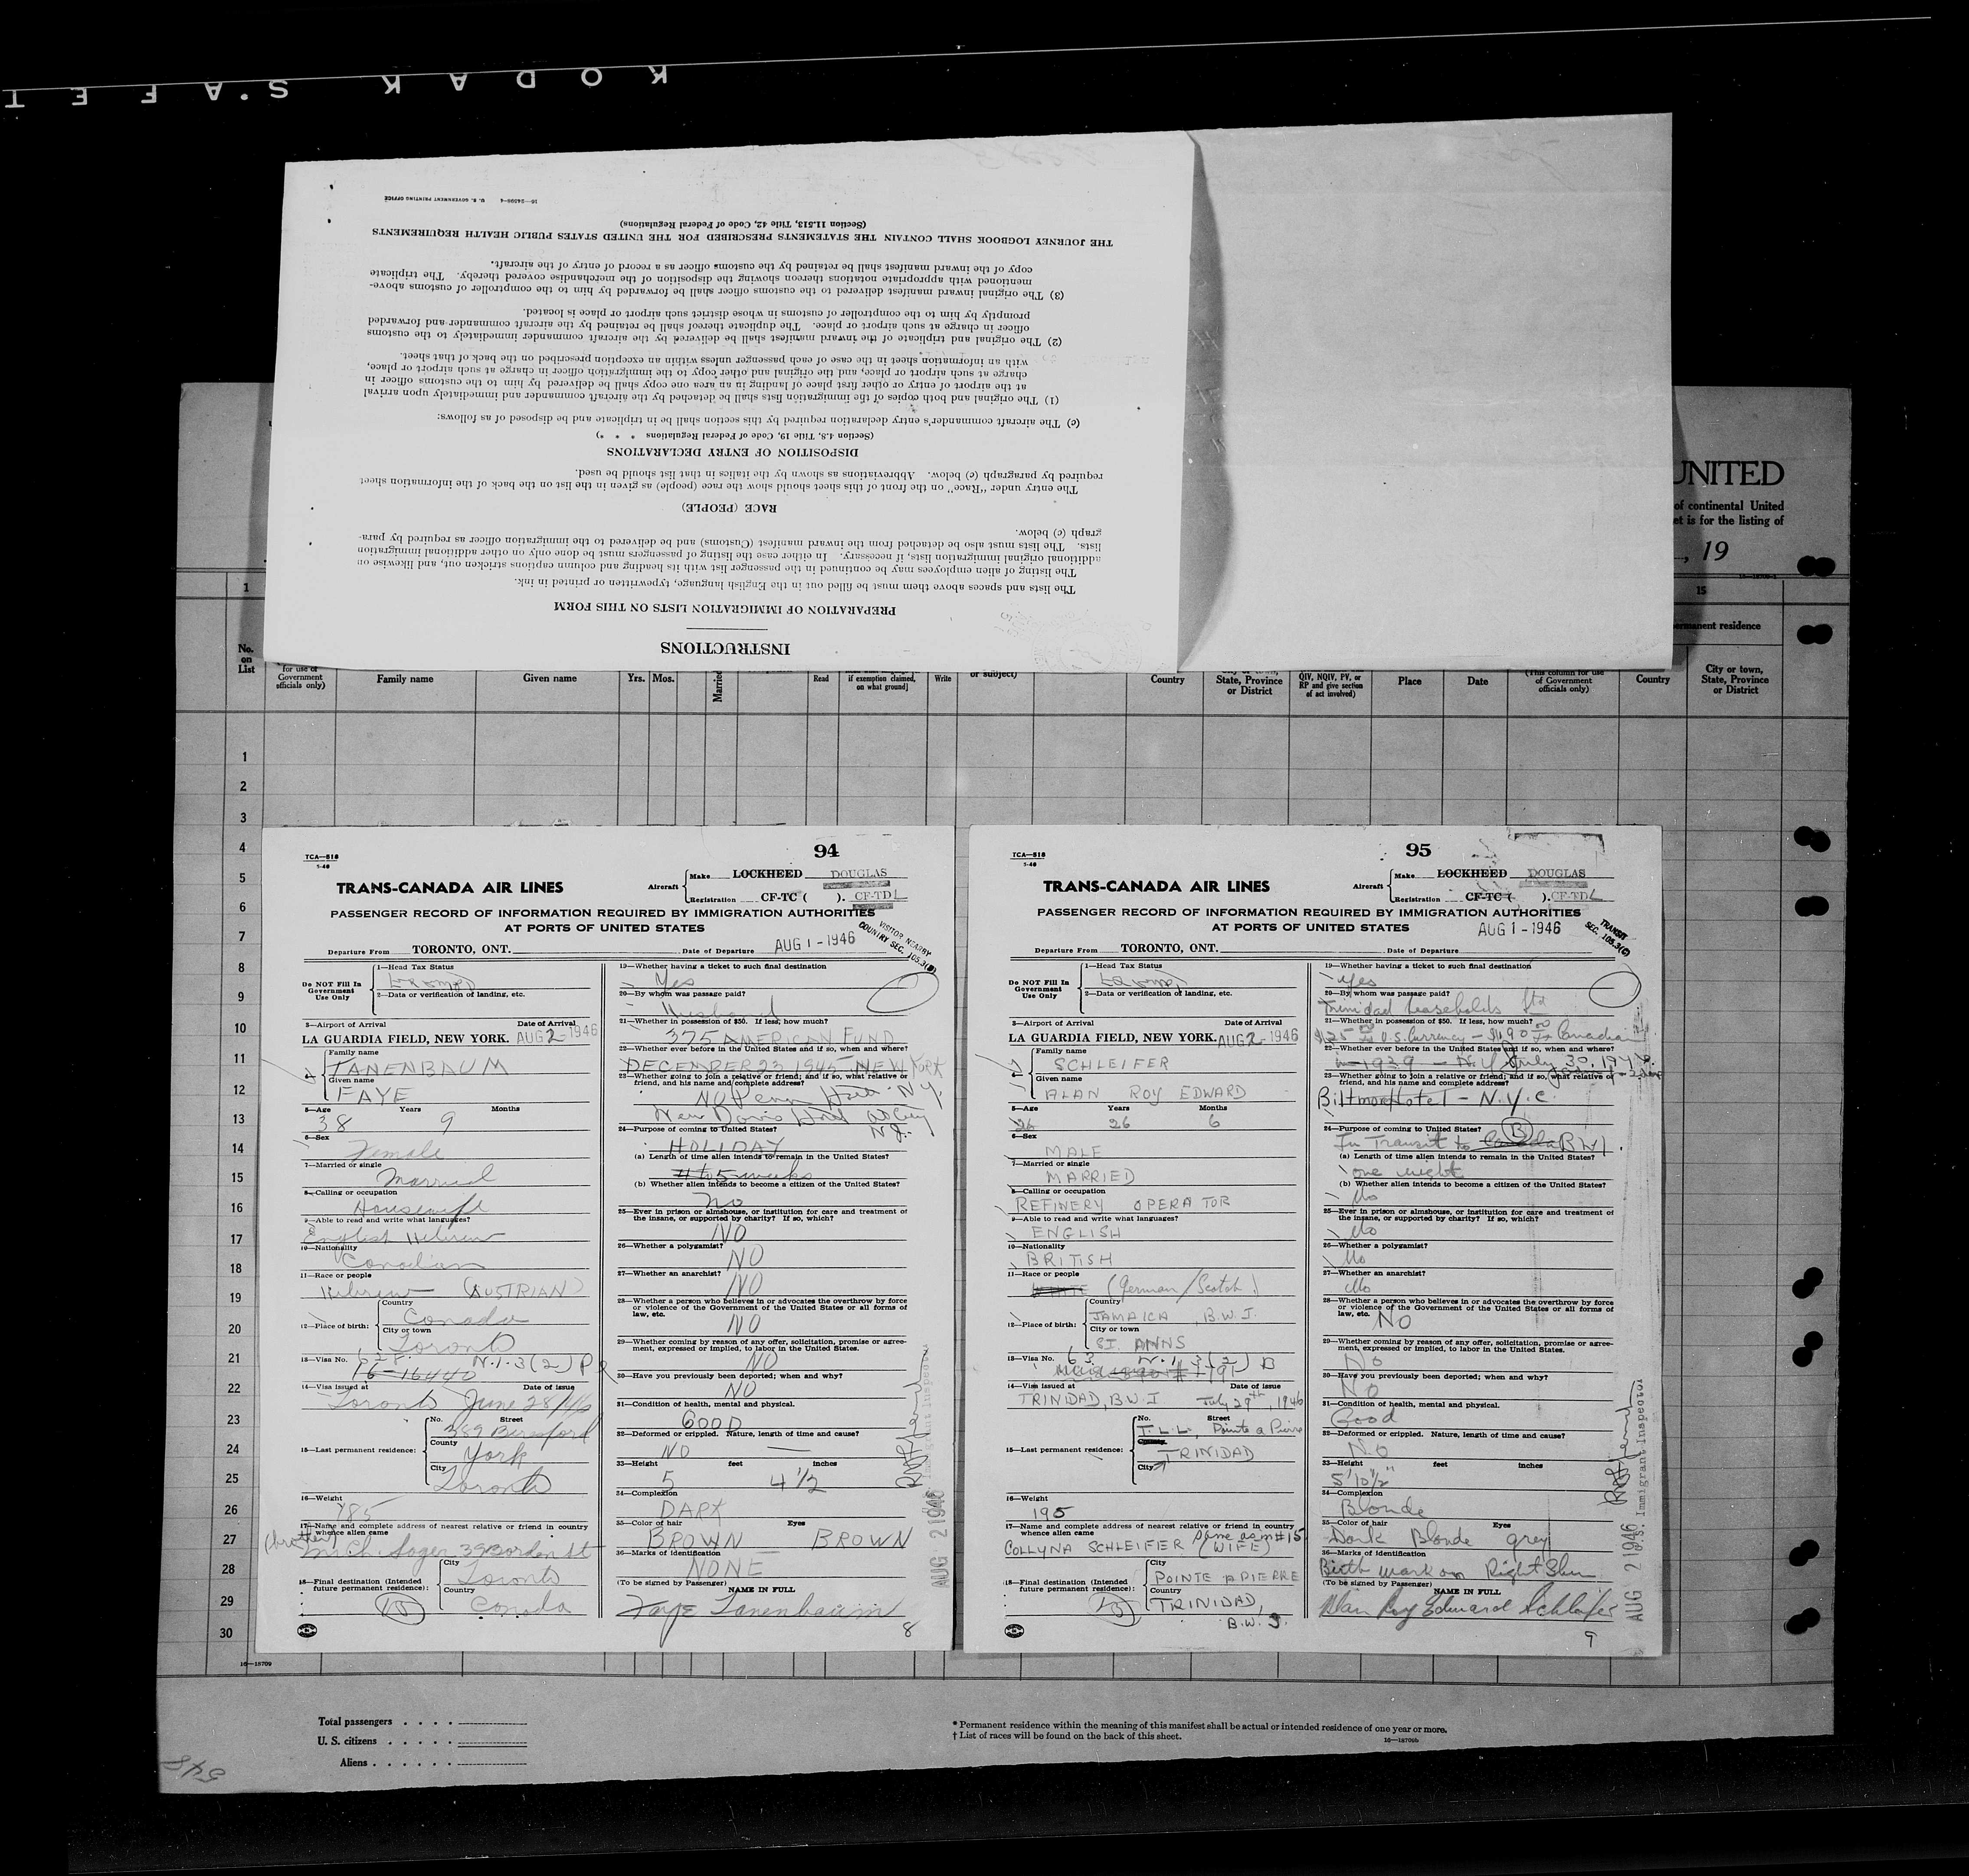 KODAK S.AFET
INSTRUCTIONS
PREPARATION OF IMMIGRATION LISTS ON THIS FORM
The lists and spaces above them must be filled out in the English language, typewritten or printed in ink.
The listing of alien employees may be continued in the passenger list with its heading and column captions stricken out, and likewise on
additional original immigration lists, if necessary. In either case the listing of passengers must be done only on other additional immigration
lists. The lists must also be detached from the inward manifest (Customs) and be delivered to the immigration officer as required by para-
graph (c) below.
RACE (PEOPLE)
The entry under "Race" on the front of this sheet should show the race (people) as given in the list on the back of the information sheet
required by paragraph (c) below. Abbreviations as shown by the italics in that list should be used.
DISPOSITION OF ENTRY DECLARATIONS
(Section 4.8, Title 19, Code of Federal Regulations * * *)
(c) The aircraft commander's entry declaration required by this section shall be in triplicate and be disposed of as follows:
(1) The original and both copies of the immigration lists shall be detached by the aircraft commander and immediately upon arrival
at the airport of entry or other first place of landing in an area one copy shall be delivered by him to the customs officer in
charge at such airport or place, and the original and other copy to the immigration officer in charge at such airport or place,
with an information sheet in the case of each passenger unless within an exception prescribed on the back of that sheet.
(2) The original and triplicate of the inward manifest shall be delivered by the aircraft commander immediately to the customs
officer in charge at such airport or place. The duplicate thereof shall be retained by the aircraft commander and forwarded
promptly by him to the comptroller of customs in whose district such airport or place is located.
(3) The original inward manifest delivered to the customs officer shall be forwarded by him to the comptroller of customs above-
mentioned with appropriate notations thereon showing the disposition of the merchandise covered thereby. The triplicate
copy of the inward manifest shall be retained by the customs officer as a record of entry of the aircraft.
THE JOURNEY LOGBOOK SHALL CONTAIN THE STATEMENTS PRESCRIBED FOR THE UNITED STATES PUBLIC HEALTH REQUIREMENTS
(Section 11.513, Title 42, Code of Federal Regulations)
16—24598-4 U. S. GOVERNMENT PRINTING OFFICE
UNITED
of continental United
et is for the listing of
, 19
1
15
permanent residence
No.
on
List
for use of
Government
officials only)
Family name
Given name
Yrs.
Mos.
Married
Read
if exemption claimed,
on what ground]
Write
or subject)
Country
State, Province
or District
QIV, NQIV, PV, or
RP and give section
of act involved)
Place
Date
(This column for use
of Government
officials only)
Country
City or town,
State, Province
or District
1
2
3
4
5
6
7
8
9
10
11
12
13
14
15
16
17
18
19
20
21
22
23
24
25
26
27
28
29
30
94
TCA—518
1-46
TRANS-CANADA AIR LINES
Aircraft
Make LOCKHEED DOUGLAS
Registration CF-TC ( ). CF-TDL
PASSENGER RECORD OF INFORMATION REQUIRED BY IMMIGRATION AUTHORITIES
AT PORTS OF UNITED STATES
VISITOR NEARBY
COUNTRY SEC. 105.3(B)
Departure From TORONTO, ONT. Date of Departure AUG 1 - 1946
Do NOT Fill In
Government
Use Only
1—Head Tax Status
Exempt
2—Data or verification of landing, etc.
3—Airport of Arrival Date of Arrival
LA GUARDIA FIELD, NEW YORK. AUG 2 - 1946
4—
Family name
TANENBAUM
Given name
FAYE
5—Age Years Months
38 9
6—Sex
Female
7—Married or single
Married
8—Calling or occupation
Housewife
9—Able to read and write what languages?
English Hebrew
10—Nationality
Canadian
11—Race or people
Hebrew (AUSTRIAN)
12—Place of birth:
Country
Canada
City or town
Toronto
13—Visa No. 628. N.I. 3(2) P
16-16440
14—Visa issued at Date of issue
Toronto June 28/46
15—Last permanent residence:
No. Street
389 Beresford
County
York
City
Toronto
16—Weight
185
17—Name and complete address of nearest relative or friend in country
whence alien came
(brother)
Mr Ch. Soger 39 Borden St
18—Final destination (Intended
future permanent residence):
City
Toronto
Country
Canada
19—Whether having a ticket to such final destination
Yes
20—By whom was passage paid?
Husband
21—Whether in possession of $50. If less, how much?
375 AMERICAN FUND
22—Whether ever before in the United States and if so, when and where?
DECEMBER 23 1945 NEW YORK
23—Whether going to join a relative or friend; and if so, what relative or
friend, and his name and complete address?
NO Penn Hotel N.Y.
24—Purpose of coming to United States?
HOLIDAY
(a) Length of time alien intends to remain in the United States?
4 to 5 weeks
(b) Whether alien intends to become a citizen of the United States?
no
25—Ever in prison or almshouse, or institution for care and treatment of
the insane, or supported by charity? If so, which?
NO
26—Whether a polygamist?
NO
27—Whether an anarchist?
NO
28—Whether a person who believes in or advocates the overthrow by force
or violence of the Government of the United States or all forms of
law, etc.
NO
29—Whether coming by reason of any offer, solicitation, promise or agree-
ment, expressed or implied, to labor in the United States.
NO
30—Have you previously been deported; when and why?
NO
31—Condition of health, mental and physical.
GOOD
32—Deformed or crippled. Nature, length of time and cause?
NO —
33—Height feet inches
5 4 1/2
34—Complexion
DARK
35—Color of hair Eyes
BROWN BROWN
36—Marks of identification
NONE
(To be signed by Passenger) NAME IN FULL
Faye Tanenbaum
8
AUG 2 1946
Immigrant Inspector
95
TCA—518
1-46
TRANS-CANADA AIR LINES
Aircraft
Make LOCKHEED DOUGLAS
Registration CF-TC ( ). CF-TDL
PASSENGER RECORD OF INFORMATION REQUIRED BY IMMIGRATION AUTHORITIES
AT PORTS OF UNITED STATES
TRANSIT
SEC. 105.3(C)
Departure From TORONTO, ONT. Date of Departure AUG 1 - 1946
Do NOT Fill In
Government
Use Only
1—Head Tax Status
Exempt
2—Data or verification of landing, etc.
3—Airport of Arrival Date of Arrival
LA GUARDIA FIELD, NEW YORK. AUG 2 - 1946
4—
Family name
SCHLEIFER
Given name
ALAN ROY EDWARD
5—Age Years Months
26 26 6
6—Sex
MALE
7—Married or single
MARRIED
8—Calling or occupation
REFINERY OPERATOR
9—Able to read and write what languages?
ENGLISH
10—Nationality
BRITISH
11—Race or people
WHITE (German/Scotch)
12—Place of birth:
Country
JAMAICA, B.W.I.
City or town
ST. ANNS
13—Visa No. 63 N.I. 3(2) B
14—Visa issued at Date of issue
TRINIDAD, B.W.I July 29th, 1946
15—Last permanent residence:
No. Street
T.L.L., Pointe a Pierre
County
TRINIDAD
City
16—Weight
195
17—Name and complete address of nearest relative or friend in country
whence alien came Same as in #15
COLLYNA SCHLEIFER (WIFE)
18—Final destination (Intended
future permanent residence):
City
POINTE A PIERRE
Country
TRINIDAD,
B.W.I.
19—Whether having a ticket to such final destination
Yes
20—By whom was passage paid?
Trinidad Leaseholds Ltd
21—Whether in possession of $50. If less, how much?
$125 U.S. Currency — $190 Canadian
22—Whether ever before in the United States and if so, when and where?
1939 — N.Y. July 30, 1946
23—Whether going to join a relative or friend; and if so, what relative or
friend, and his name and complete address?
Biltmore Hotel - N.Y.C.
24—Purpose of coming to United States? (B)
In Transit to Canada BWI
(a) Length of time alien intends to remain in the United States?
one night
(b) Whether alien intends to become a citizen of the United States?
No
25—Ever in prison or almshouse, or institution for care and treatment of
the insane, or supported by charity? If so, which?
No
26—Whether a polygamist?
No
27—Whether an anarchist?
No
28—Whether a person who believes in or advocates the overthrow by force
or violence of the Government of the United States or all forms of
law, etc.
NO
29—Whether coming by reason of any offer, solicitation, promise or agree-
ment, expressed or implied, to labor in the United States.
No
30—Have you previously been deported; when and why?
NO
31—Condition of health, mental and physical.
Good
32—Deformed or crippled. Nature, length of time and cause?
NO
33—Height feet inches
5' 10 1/2"
34—Complexion
Blonde
35—Color of hair Eyes
Dark Blonde grey
36—Marks of identification
Birth mark on Right Shin
(To be signed by Passenger) NAME IN FULL
Alan Roy Edward Schleifer
9
AUG 2 1946
U.S. Immigrant Inspector
16—18709
Total passengers . . . .
U. S. citizens . . . . .
Aliens . . . . . .
* Permanent residence within the meaning of this manifest shall be actual or intended residence of one year or more.
† List of races will be found on the back of this sheet.
16—18709b
5458